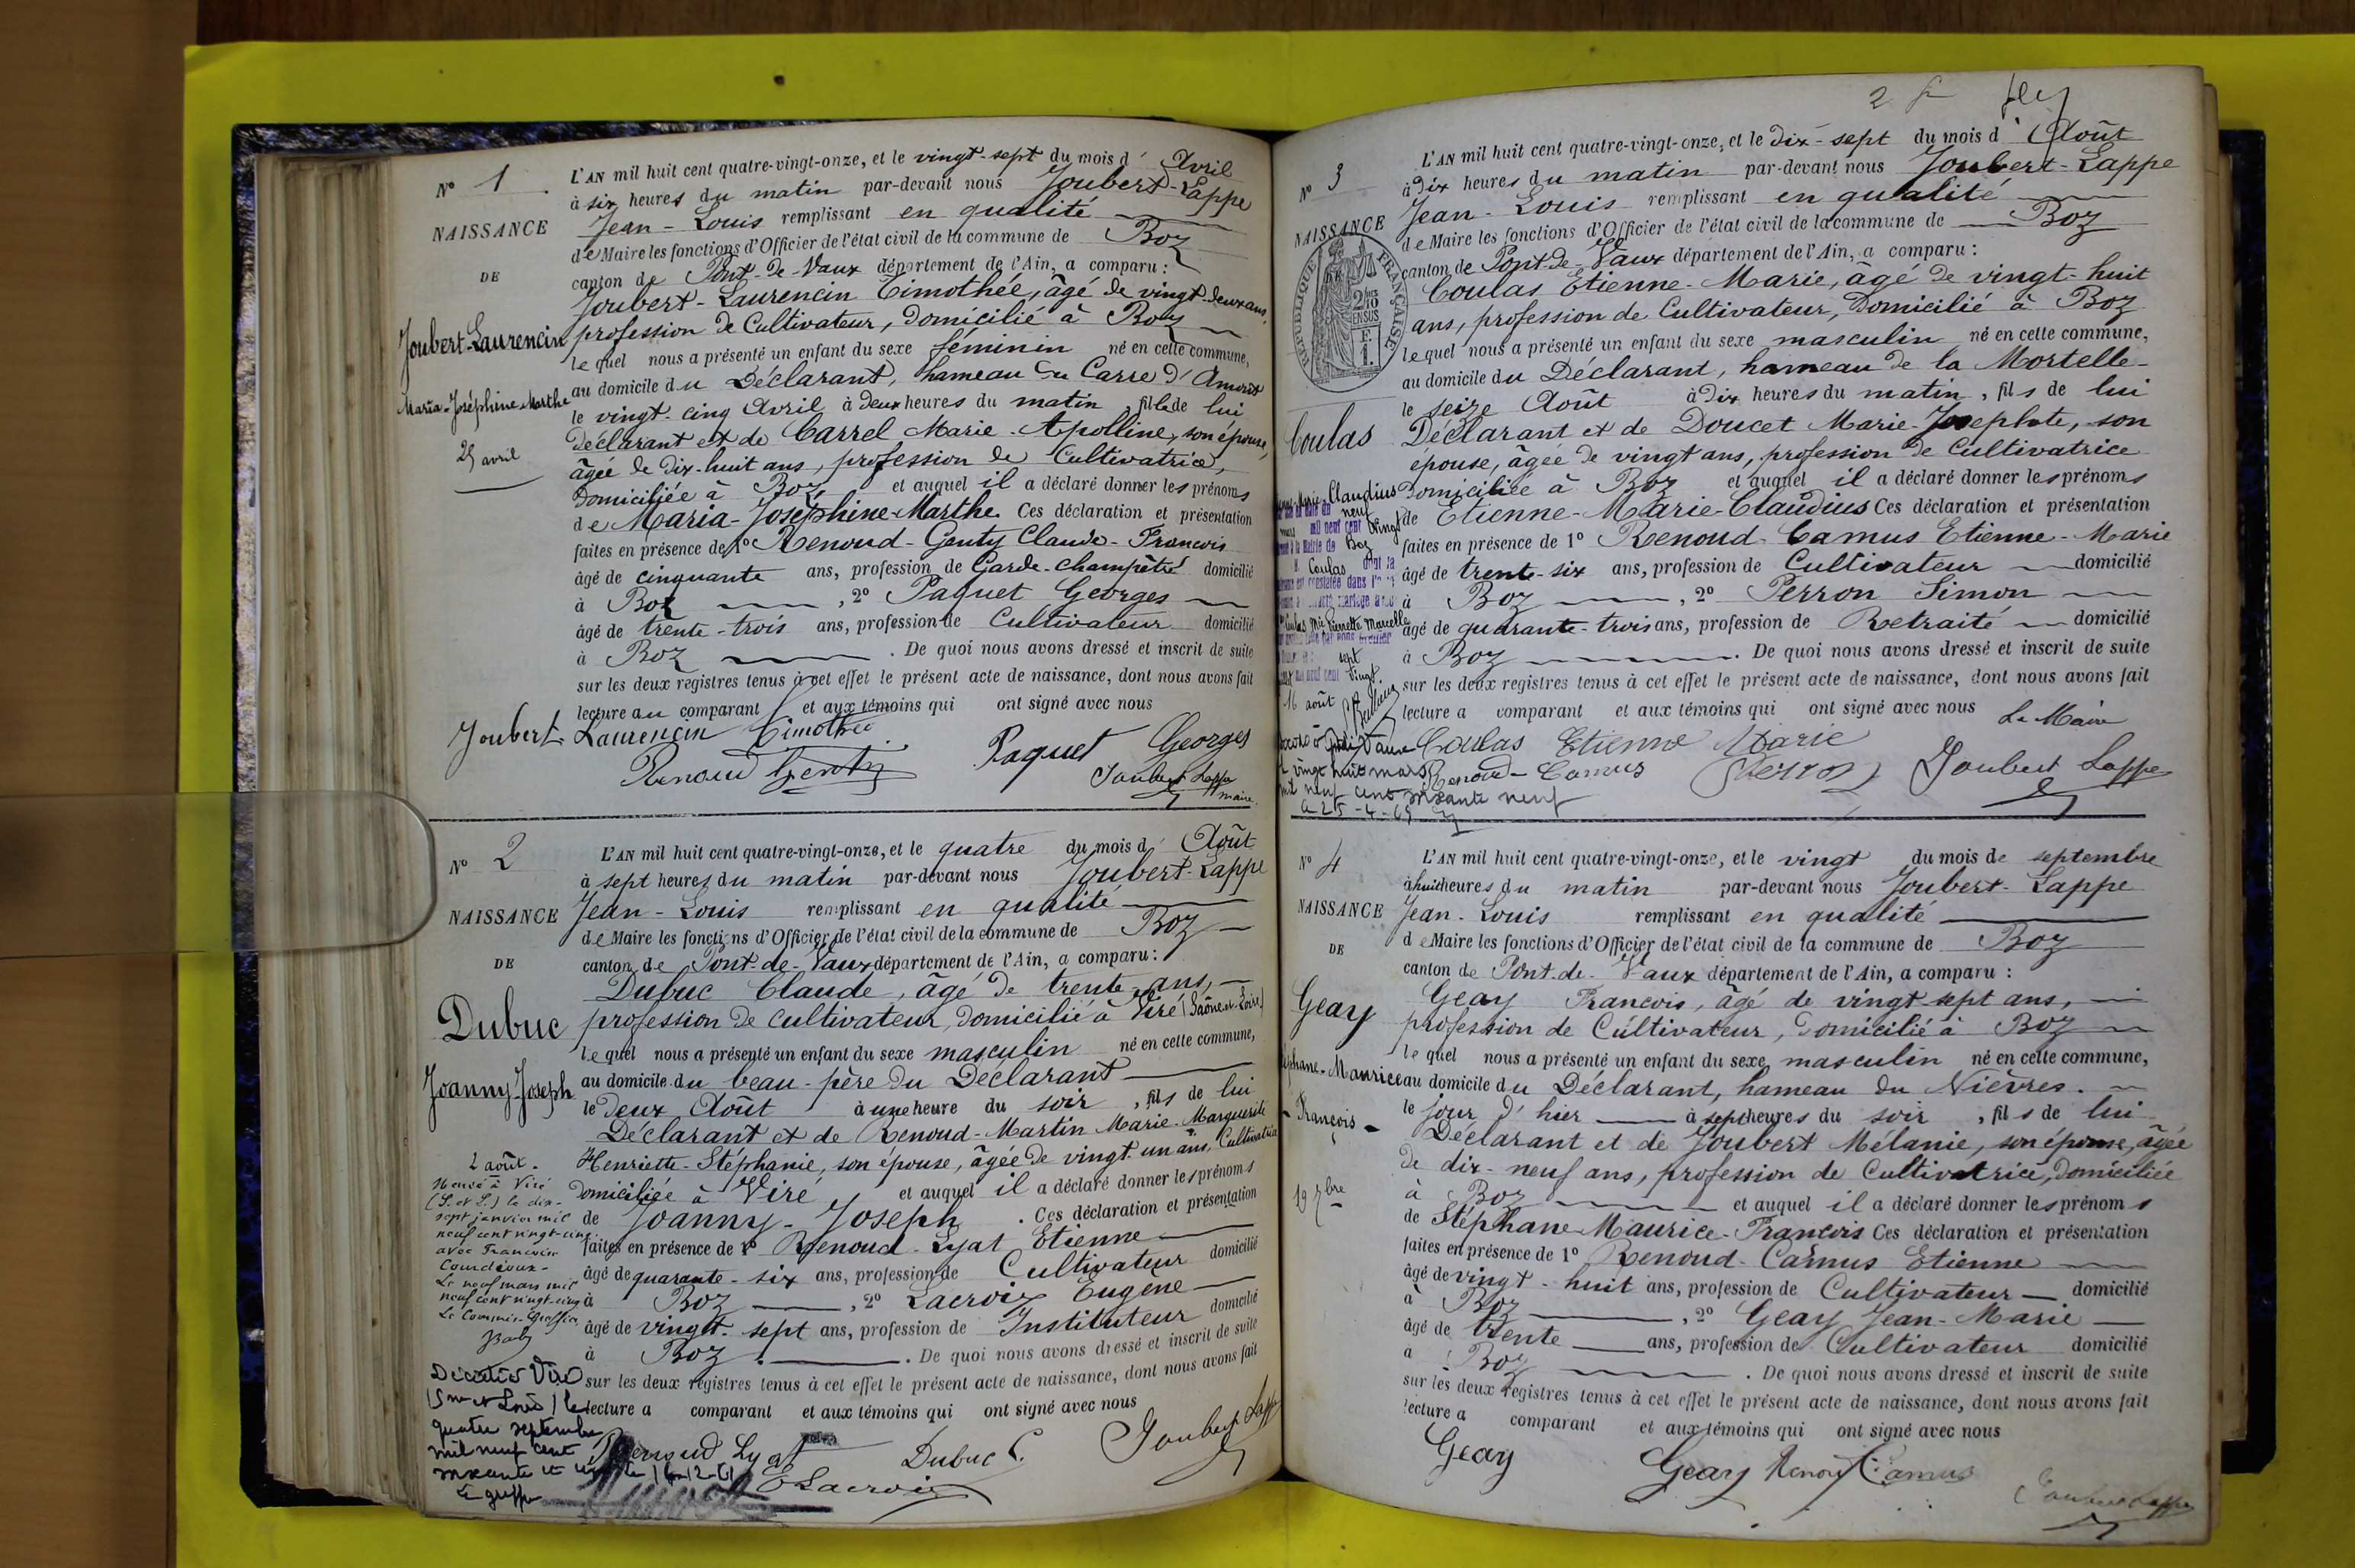 N° 1
NAISSANCE
DE
Joubert-Laurencin
Maria-Joséphine-Marthe
25 avril
L'AN mil huit cent quatre-vingt-onze, et le vingt-sept du mois d' Avril
à six heures du matin par-devant nous Joubert-Lappe
Jean-Louis remplissant en qualité
de Maire les fonctions d'Officier de l'état civil de la commune de Boz
canton de Pont-de-Vaux département de l'Ain, a comparu :
Joubert-Laurencin Timothée, âgé de vingt-deux ans,
profession de Cultivateur, domicilié à Boz
lequel nous a présenté un enfant du sexe féminin né en cette commune,
au domicile du Déclarant, hameau du Carre d'Amont
le vingt-cinq Avril à deux heures du matin, fille de lui
déclarant et de Carrel Marie-Apolline, son épouse,
âgée de dix-huit ans, profession de Cultivatrice,
domiciliée à Boz, et auquel il a déclaré donner les prénoms
de Maria-Joséphine-Marthe. Ces déclaration et présentation
faites en présence de 1° Renoud-Genty Claude-François
âgé de cinquante ans, profession de Garde-champêtre domicilié
à Boz, 2° Paquet Georges
âgé de trente-trois ans, profession de Cultivateur domicilié
à Boz. De quoi nous avons dressé et inscrit de suite
sur les deux registres tenus à cet effet le présent acte de naissance, dont nous avons fait
lecture au comparant et aux témoins qui ont signé avec nous
Joubert-Laurencin Timothée
Paquet Georges
Renoud Genty
Joubert Lappe
maire
N° 2
NAISSANCE
DE
Dubuc
Joanny-Joseph
2 août.
Marié à Viré
(S. et L.) le dix-
sept janvier mil
neuf cent vingt-cinq
avec Francine
Le neuf mars mil
neuf cent vingt-cinq
Le Commis-Greffier
Décédé à Viré
quatre septembre
mil neuf cent
L'AN mil huit cent quatre-vingt-onze, et le quatre du mois d' Août
à sept heures du matin par-devant nous Joubert-Lappe
Jean-Louis remplissant en qualité
de Maire les fonctions d'Officier de l'état civil de la commune de Boz
canton de Pont-de-Vaux département de l'Ain, a comparu :
Dubuc Claude, âgé de trente ans,
profession de Cultivateur, domicilié à Viré (Saône-et-Loire)
lequel nous a présenté un enfant du sexe masculin né en cette commune,
au domicile du beau-père du Déclarant
le deux Août à une heure du soir, fils de lui
Déclarant et de Renoud-Martin Marie-Marguerite
Henriette-Stéphanie, son épouse, âgée de vingt-un ans, Cultivatrice
domiciliée à Viré et auquel il a déclaré donner les prénoms
de Joanny-Joseph. Ces déclaration et présentation
faites en présence de 1° Renoud-Lyat Etienne
âgé de quarante-six ans, profession de Cultivateur domicilié
à Boz, 2° Lacroix Eugène
âgé de vingt-sept ans, profession de Instituteur domicilié
à Boz. De quoi nous avons dressé et inscrit de suite
sur les deux registres tenus à cet effet le présent acte de naissance, dont nous avons fait
lecture a comparant et aux témoins qui ont signé avec nous
Renoud Lyat
Dubuc C.
Joubert Lappe
E Lacroix
2
N° 3
NAISSANCE
RÉPUBLIQUE FRANÇAISE
Coulas
Etienne-Marie-Claudius
neuf
mil neuf cent vingt
à la Mairie de Boz
Coulas
Marcelle
sept
vingt
16 août
vingt huit mars
mil neuf cent soixante neuf
L'AN mil huit cent quatre-vingt-onze, et le dix-sept du mois d' Août
à dix heures du matin par-devant nous Joubert-Lappe
Jean-Louis remplissant en qualité
de Maire les fonctions d'Officier de l'état civil de la commune de Boz
canton de Pont-de-Vaux département de l'Ain, a comparu :
Coulas Etienne-Marie, âgé de vingt-huit
ans, profession de Cultivateur, domicilié à Boz
lequel nous a présenté un enfant du sexe masculin né en cette commune,
au domicile du Déclarant, hameau de la Mortelle-
le seize Août à dix heures du matin, fils de lui
Déclarant et de Doucet Marie-Josephte, son
épouse, âgée de vingt ans, profession de Cultivatrice
domiciliée à Boz et auquel il a déclaré donner les prénoms
de Etienne-Marie-Claudius Ces déclaration et présentation
faites en présence de 1° Renoud-Camus Etienne-Marie
âgé de trente-six ans, profession de Cultivateur domicilié
à Boz, 2° Perron Simon
âgé de quarante-trois ans, profession de Retraité domicilié
à Boz. De quoi nous avons dressé et inscrit de suite
sur les deux registres tenus à cet effet le présent acte de naissance, dont nous avons fait
lecture a comparant et aux témoins qui ont signé avec nous
Le Maire
Coulas Etienne Marie
Renoud-Camus
Perron
Joubert Lappe
N° 4
NAISSANCE
DE
Geay
Stéphane-Maurice
-François-
19 7bre
L'AN mil huit cent quatre-vingt-onze, et le vingt du mois de septembre
à huit heures du matin par-devant nous Joubert-Lappe
Jean-Louis remplissant en qualité
de Maire les fonctions d'Officier de l'état civil de la commune de Boz
canton de Pont-de-Vaux département de l'Ain, a comparu :
Geay François, âgé de vingt-sept ans,
profession de Cultivateur, domicilié à Boz
lequel nous a présenté un enfant du sexe masculin né en cette commune,
au domicile du Déclarant, hameau du Nièvres.
le jour d'hier à sept heures du soir, fils de lui
Déclarant et de Joubert Mélanie, son épouse, âgée
de dix-neuf ans, profession de Cultivatrice, domiciliée
à Boz et auquel il a déclaré donner les prénoms
de Stéphane-Maurice-François Ces déclaration et présentation
faites en présence de 1° Renoud-Camus Etienne
âgé de vingt-huit ans, profession de Cultivateur domicilié
à Boz, 2° Geay Jean-Marie
âgé de trente ans, profession de Cultivateur domicilié
à Boz. De quoi nous avons dressé et inscrit de suite
sur les deux registres tenus à cet effet le présent acte de naissance, dont nous avons fait
lecture a comparant et aux témoins qui ont signé avec nous
Geay
Geay Renoud Camus
Joubert Lappe